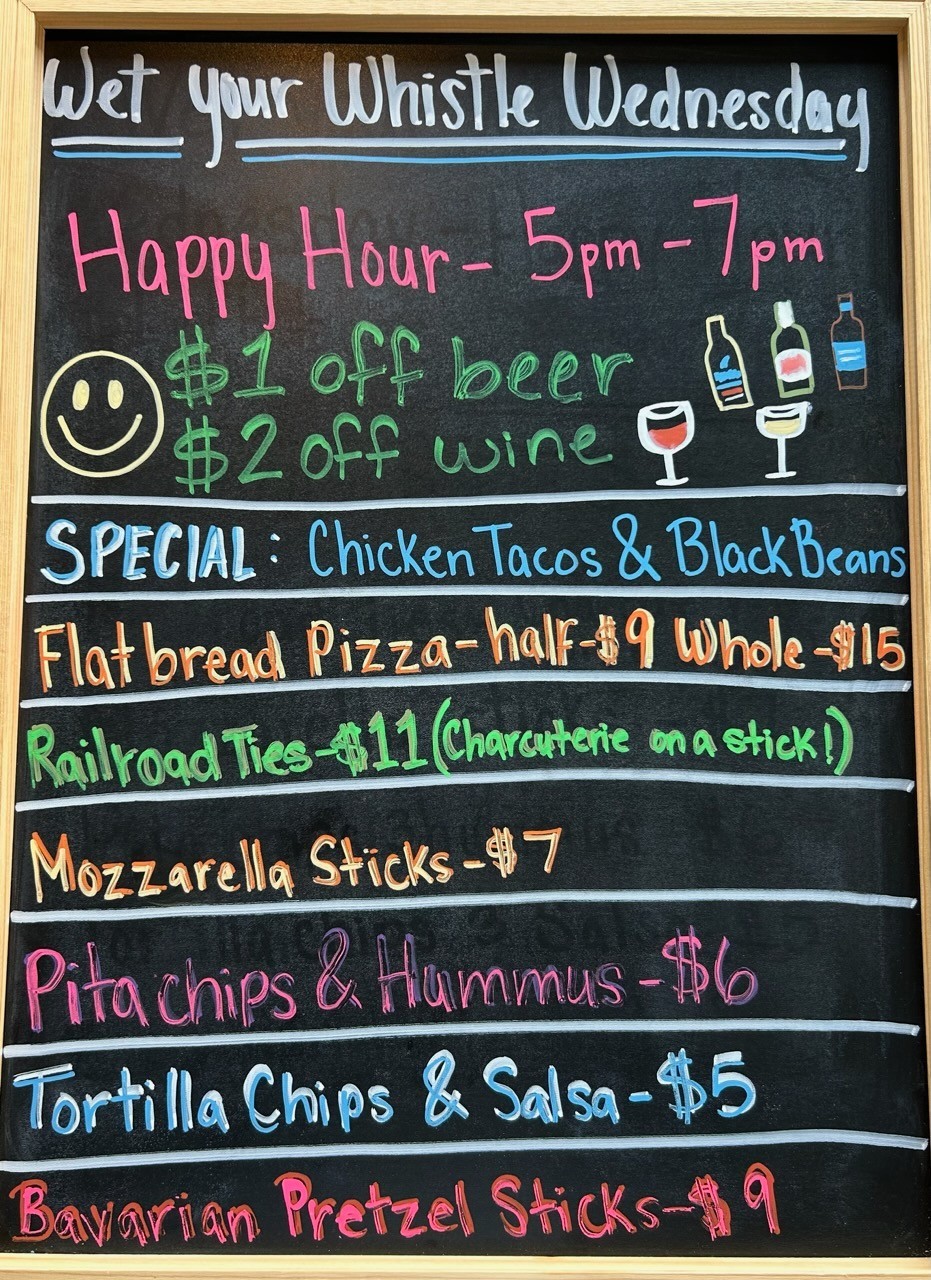 Wet your Whistle Wednesday
Happy Hour - 5pm - 7pm
$1 off beer
$2 off wine
SPECIAL: Chicken Tacos & Black Beans
Flatbread Pizza - half - $9 Whole - $15
Railroad Ties - $11 (Charcuterie on a stick!)
Mozzarella Sticks - $7
Pita chips & Hummus - $6
Tortilla Chips & Salsa - $5
Bavarian Pretzel Sticks - $9